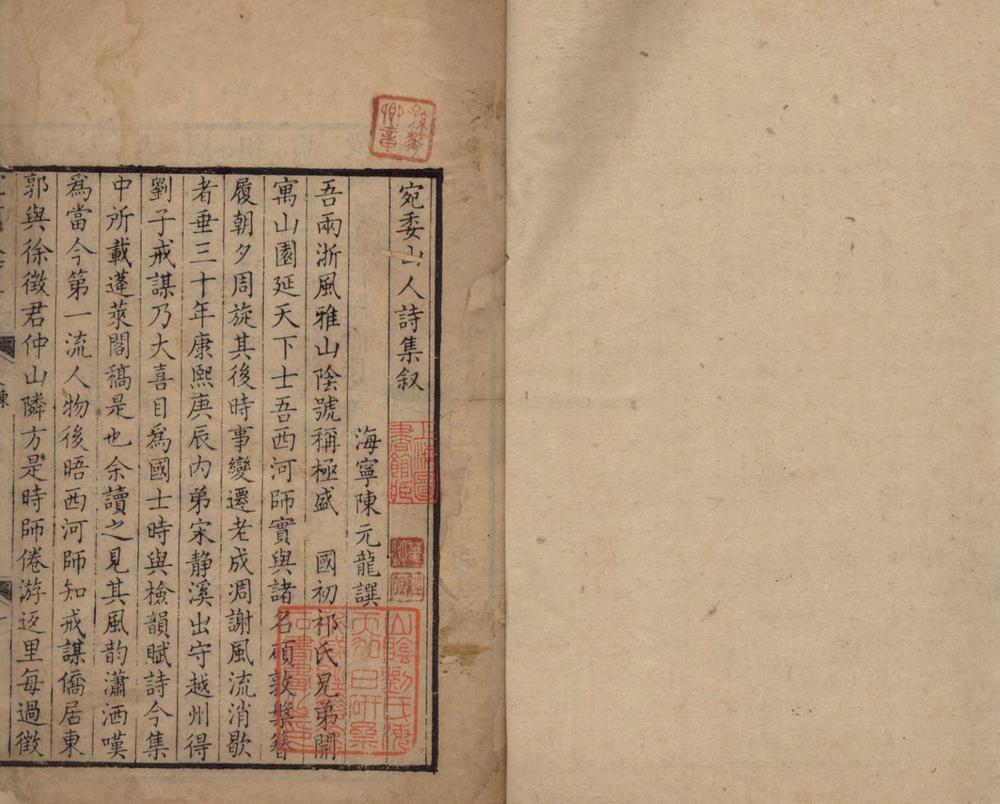 宛委山人詩集叙
海寧陳元龍譔
吾兩浙風雅山陰號稱極盛　國初祁氏兄弟開
寓山園延天下士吾西河師實與諸名碩敦槃簪
履朝夕周旋其後時事變遷老成凋謝風流消歇
者垂三十年康熙庚辰内弟宋静溪出守越州得
劉子戒謀乃大喜目為國士時與檢韻賦詩今集
中所載蓬萊閣稿是也余讀之見其風韵瀟洒嘆
爲當今第一流人物後晤西河師知戒謀僑居東
郭與徐徵君仲山隣方是時師倦游返里每過徵